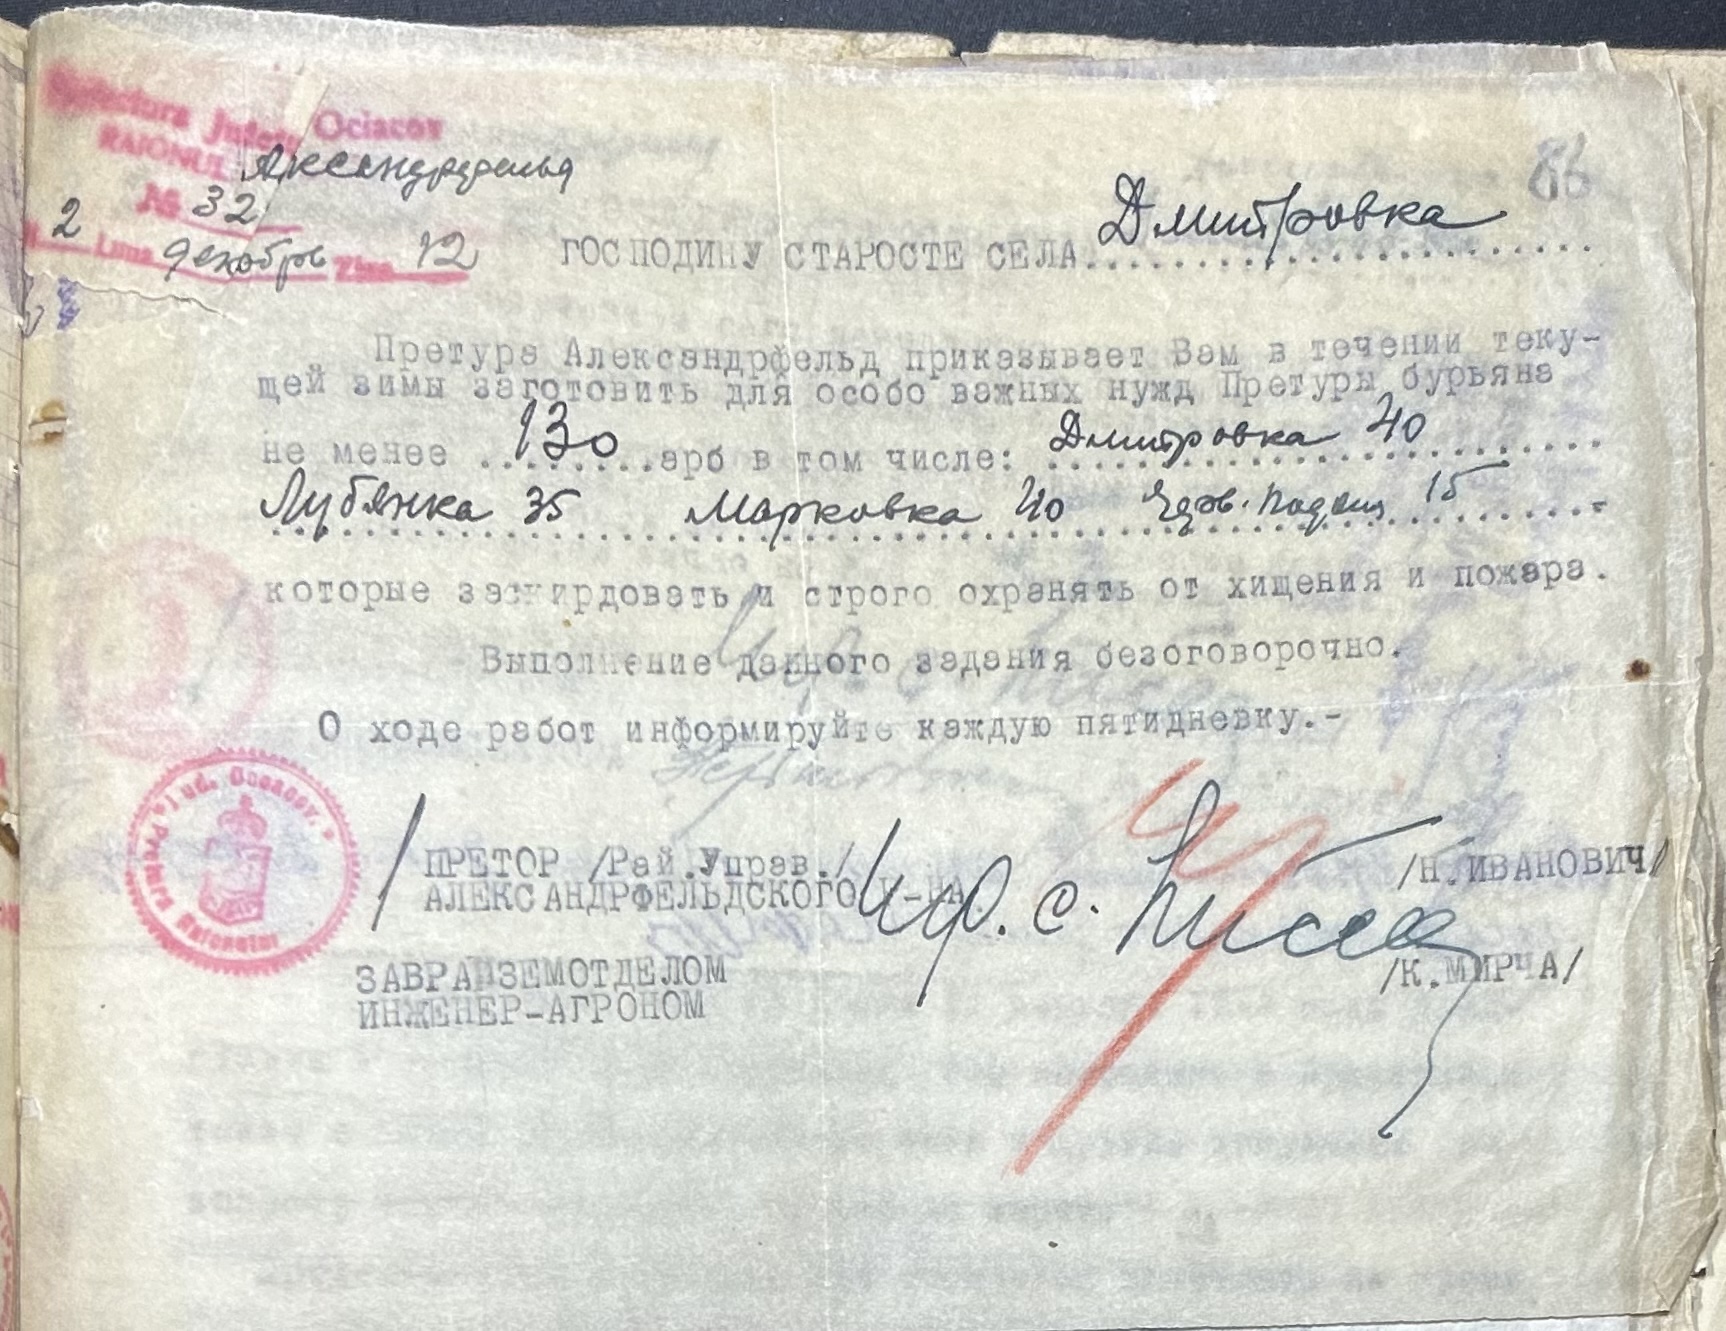 Prefectura Județ. Ociacov
RAIONUL Александрфельд
№ 32
2 Luna декабрь Ziua 12
86
ГОСПОДИНУ СТАРОСТЕ СЕЛА Дмитровка
Претура Александрфельд приказывает Вам в течении теку-
щей зимы заготовить для особо важных нужд Претуры бурьяна
не менее 130 арб в том числе: Дмитровка 40
Лубянка 35 Марковка 40 15
которые заскирдовать и строго охранять от хищения и пожара.
Выполнение данного задания безоговорочно.
О ходе работ информируйте каждую пятидневку.-
ПРЕТОР /Рай.Управ./
АЛЕКСАНДРФЕЛЬДСКОГО Р-НА
/Н.ИВАНОВИЧ/
ЗАВРАЙЗЕМОТДЕЛОМ
ИНЖЕНЕР-АГРОНОМ
/К.МИРЧА/